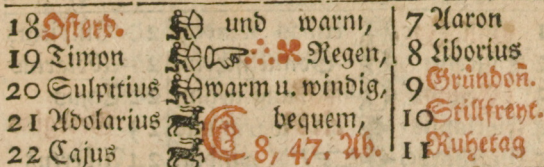 18 Osterd. und warm, 7 Aaron
19 Timon Regen, 8 Liborius
20 Sulpitius warm u. windig, 9 Gründon̄.
21 Adolarius bequem, 10 Stillfreyt.
22 Cajus 8, 47. Ab. 11 Ruhetag